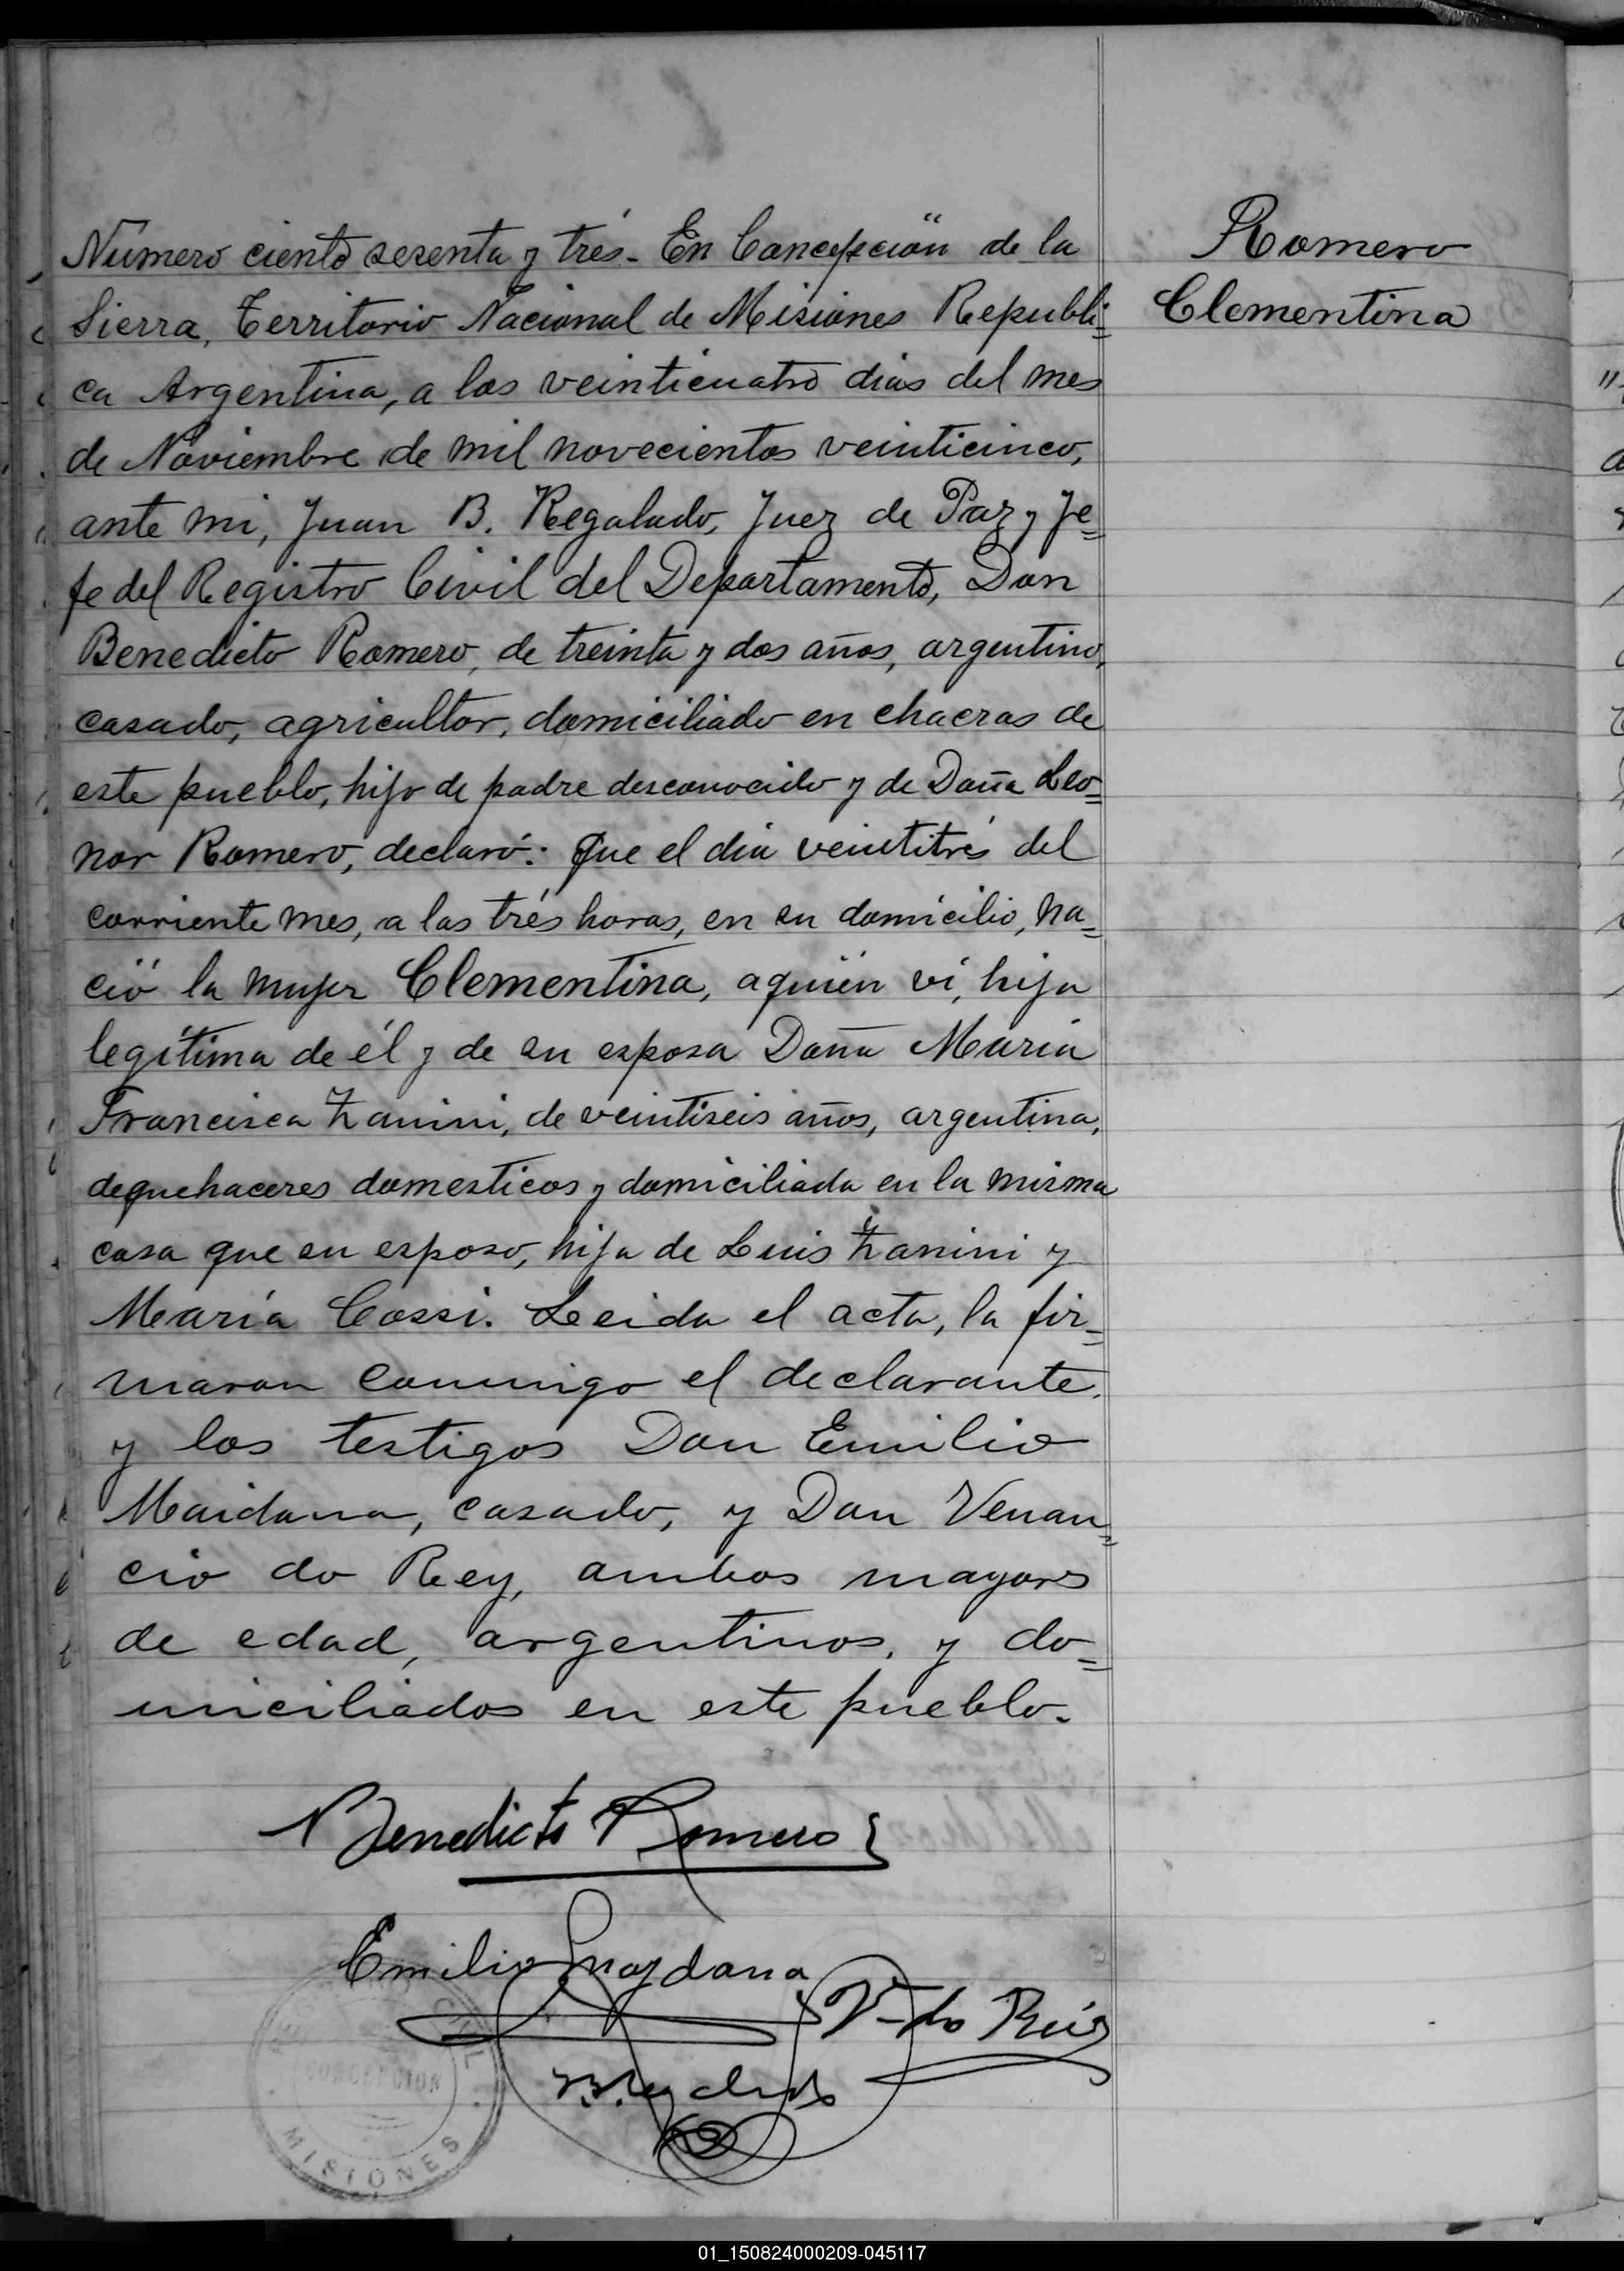 Número ciento sesenta y trés. En Concepción de la
Sierra, Territorio Nacional de Misiones Republi=
ca Argentina, a los veinticuatro dias del mes
de Noviembre de mil novecientos veinticinco,
ante mi, Juan B. Regalado, Juez de Paz y Je=
fe del Registro Civil del Departamento, Don
Benedicto Romero, de treinta y dos años, argentino,
casado, agricultor, domiciliado en chacras de
este pueblo, hijo de padre desconocido y de Doña Leo=
nor Romero, declaró: Que el día veintitrés del
corriente mes, a las trés horas, en su domicilio, na=
ció la mujer Clementina, a quién ví, hija
legítima de él y de su esposa Doña María
Francisca Zanini, de veintiseis años, argentina,
de quehaceres domesticos y domiciliada en la misma
casa que su esposo, hija de Luis Zanini y
María Cossi. Leida el acta, la fir=
maron conmigo el declarante,
y los testigos Don Emilio
Maidana, casado, y Don Venan=
cio do Rey, ambos mayores
de edad, argentinos, y do=
miciliados en este pueblo.
Benedicto Romero
Emilio Maydana
REGISTRO CIVIL
CONCEPCION
MISIONES
Romero
Clementina
01_150824000209-045117